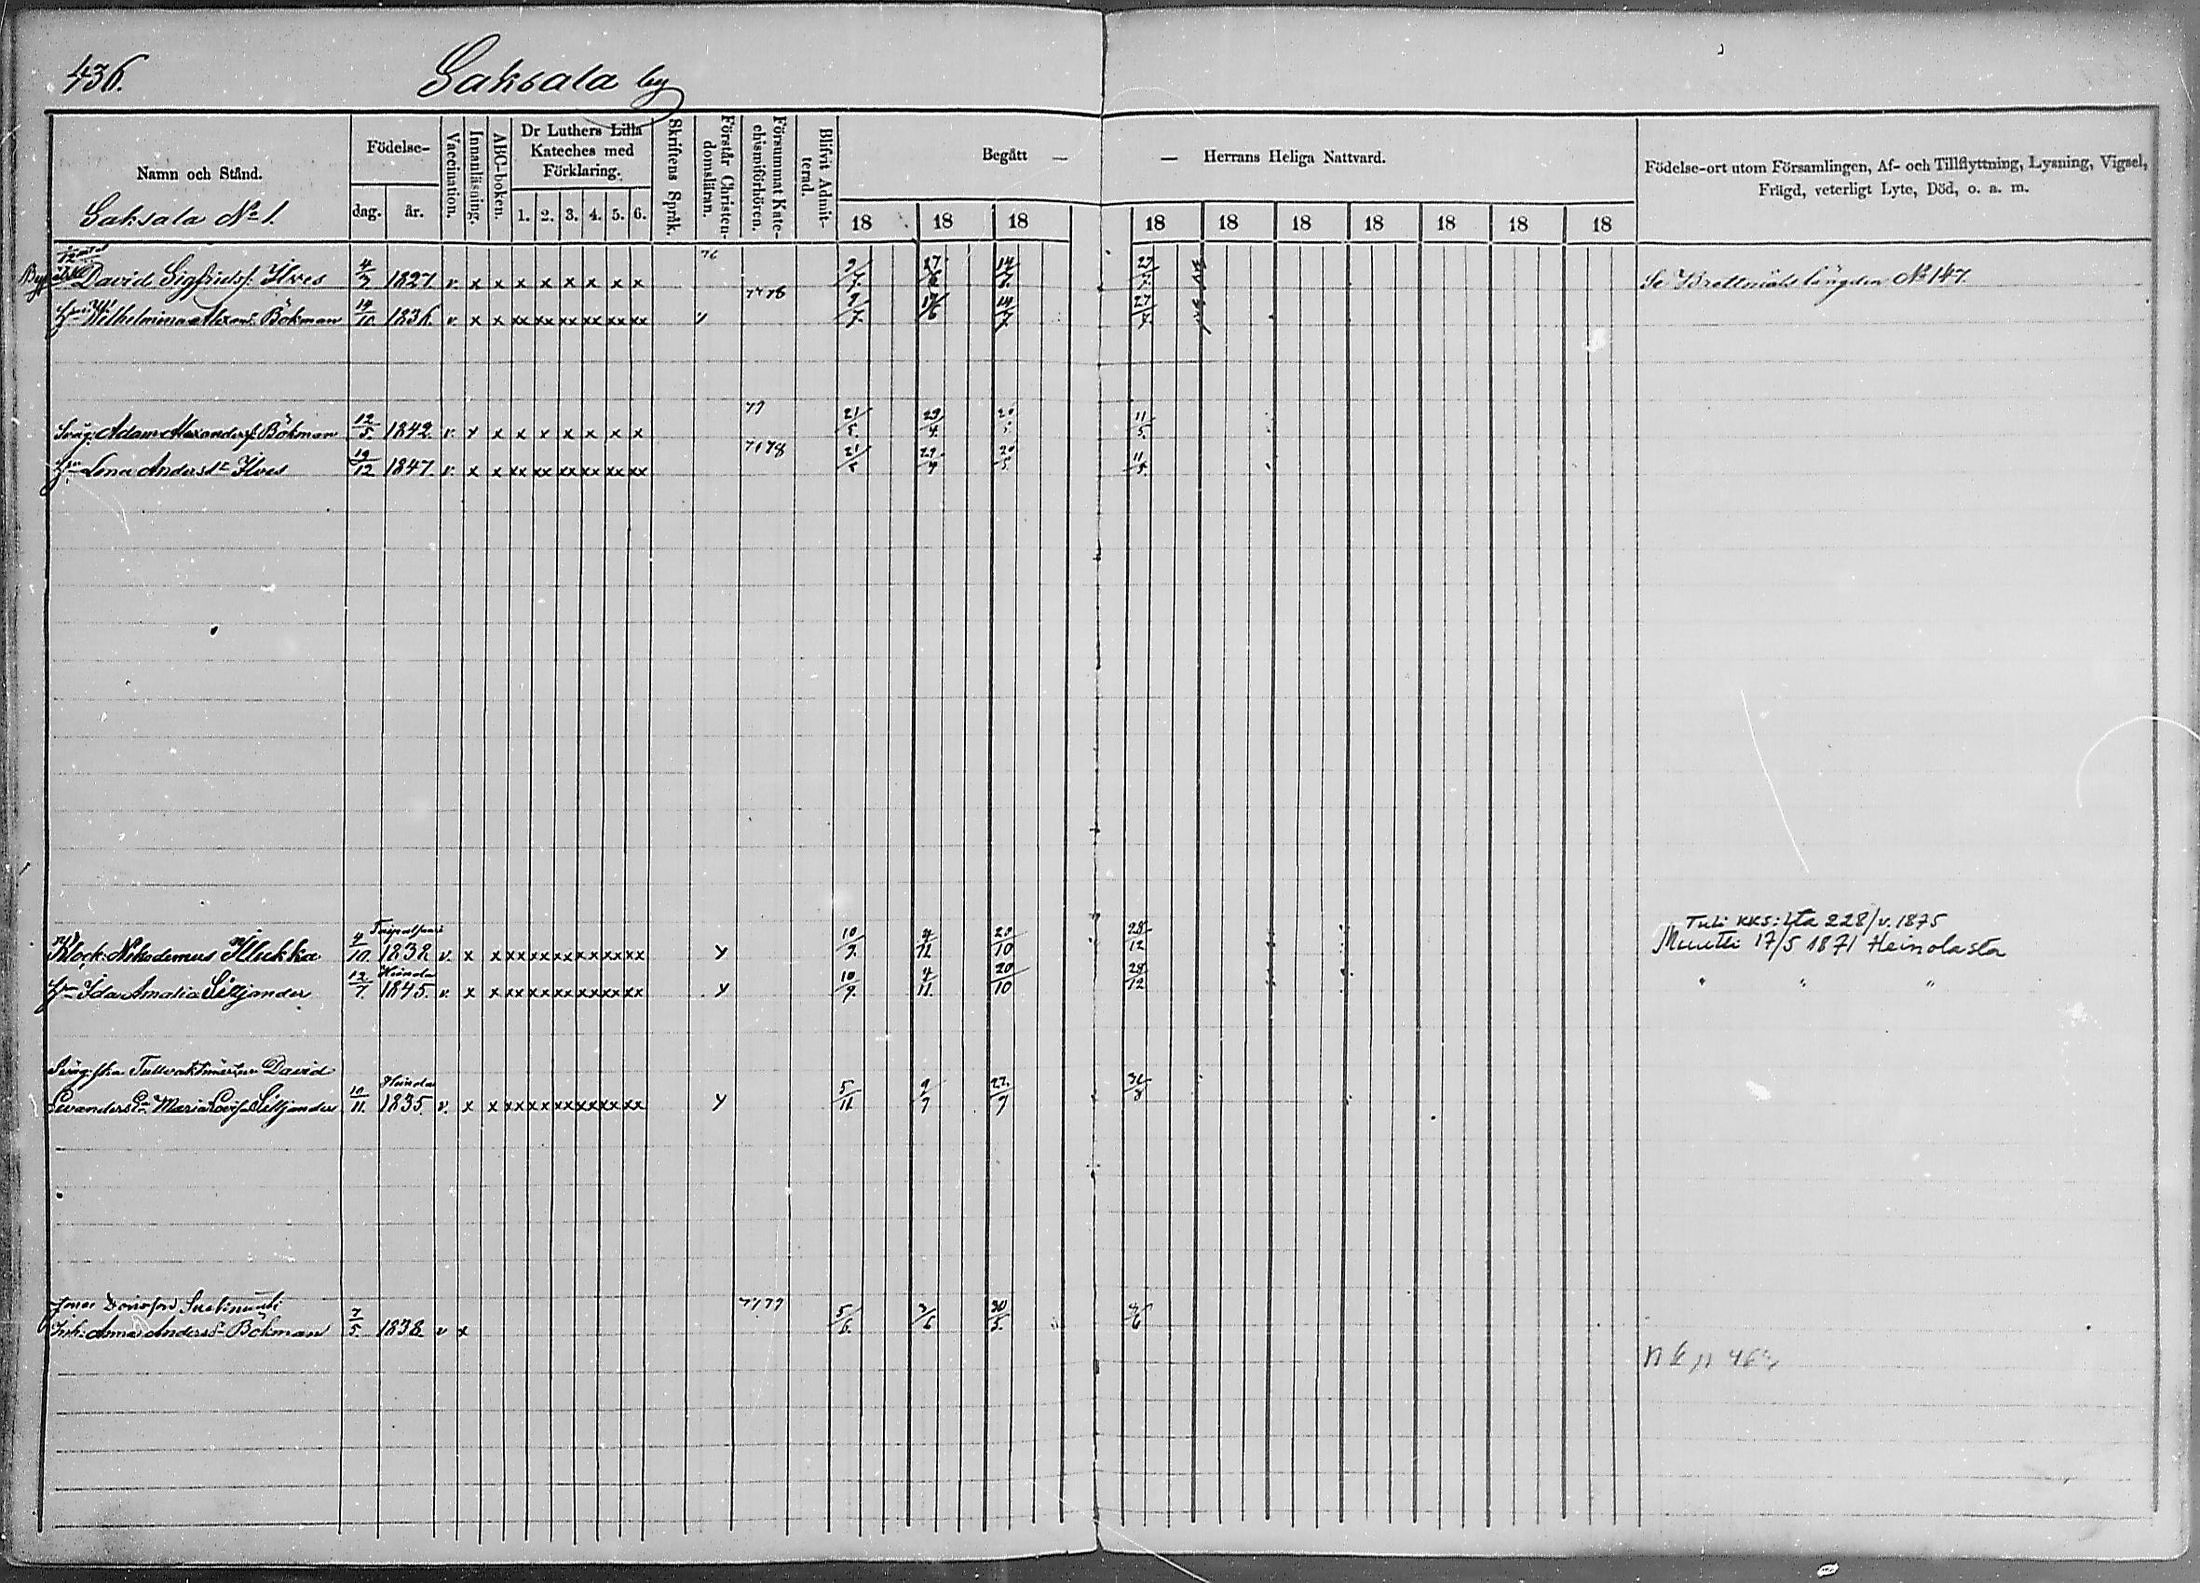 436.
Saksala by
Namn och Stånd.
Saksala No 1.
Födelse-
dag. år.
Vaccination.
Innanläsning.
ABC-boken.
Dr Luthers Lilla
Kateches med
Förklaring.
1. 2. 3. 4. 5. 6.
Skriftens Språk.
Förstår Christen-
domsläran.
Försummat Kate-
chismiförhören.
Blifvit Admit-
terad.
Begått — — Herrans Heliga Nattvard.
18 18 18 18 18 18 18 18 18 18
Födelse-ort utom Församlingen, Af- och Tillflyttning, Lysning, Vigsel,
Frägd, veterligt Lyte, Död, o. a. m.
David Sigfridsf. Ilves 4/7 1827. v. x x x x x x x x 27/7 Se Brottmålslängden No 147.
Hu Wilhelmina Alexand. Bökman 14/10 1836. v. x x xx xx xx xx xx xx 7778 9/7 17/6 14/7 27/7
Svåg: Adam Alexandersf. Bökman 12/5. 1842. v. x x x x x x x x 77 21/5. 29/4. 20/5 11/5.
Hu Lena Andersdr Ilves 19/12 1847. v. x x xx xx xx xx xx xx 7178 21/5 29/4 20/5 11/5.
Tuli KKS:lta 228/v. 1875
Klock. Nikodemus Hlukka 4/10. 1838. v. x x xx xx xx xx xx xx y 10/9. 4/11 20/10 28/12 Muutti 17/5 1871 Heinolasta
Heinola
Hu Ida Amalia Silljander 12/7. 1845. v. x x xx xx xx xx xx xx y 10/9. 4/11. 20/10 28/12 " " "
Svåg:ska Tullvaktmästar David
Heinola
Levanders Ea Maria Lovisa Silljander 10/11. 1835. v. x x xx xx xx xx xx xx y 5/11 9/7 22/7
Inh: Anna Andersdr Bökman 7/5. 1838. v x 7177 5/6. 3/6 30/5.